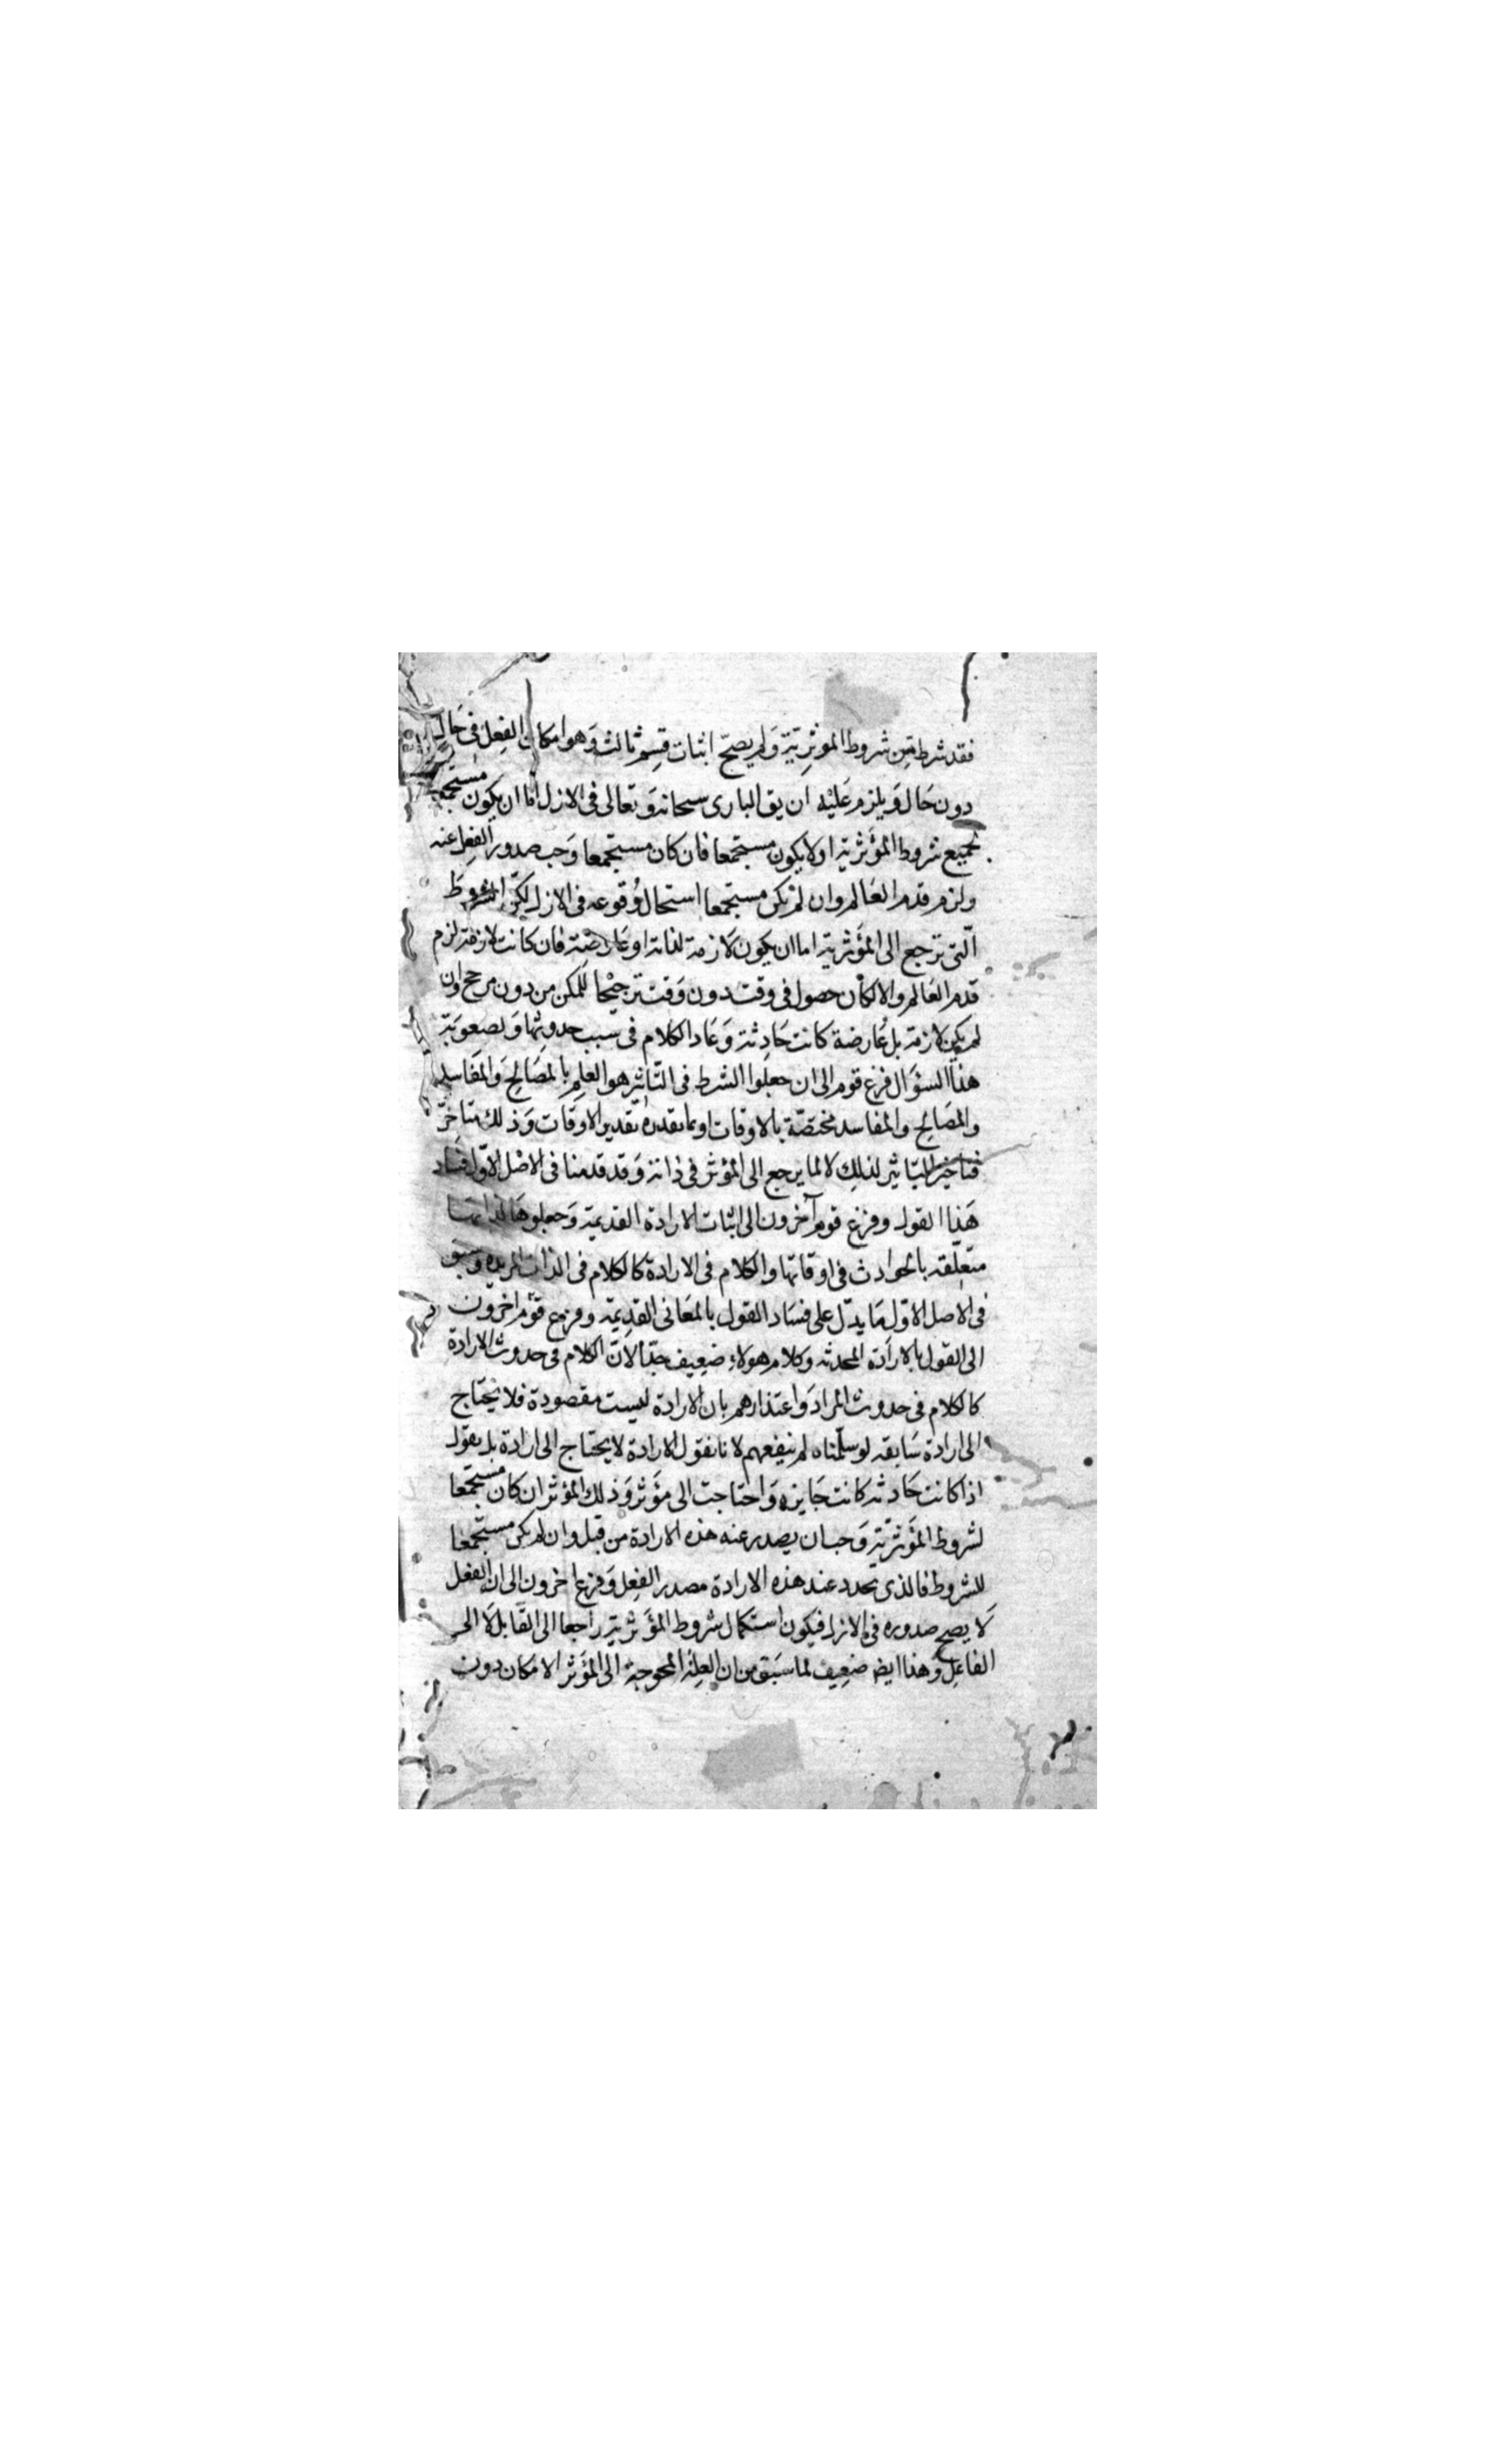 فقد شرط من شروط المؤثرية ولم يصح اثبات قسم ثالث وهو امكان الفعل فى حال
دون حال ويلزم عليه ان يق البارى سبحانه وتعالى فى الازل اما ان يكون مستجمعا
لجميع شروط المؤثرية او لا يكون مستجمعا فان كان مستجمعا وجب صدور الفعل عنه
ولزم قدم العالم وان لم يكن مستجمعا استحال وقوعه فى الازل لكن الشروط
التى ترجع الى المؤثرية اما ان يكون لازمة لذاته او عارضة فان كانت لازمة لزم
قدم العالم والا لكان حصول فى وقت دون وقت ترجيحا للمكن من دون مرجح وان
لم يكن لازمة بل عارضة كانت حادثة وعاد الكلام فى سبب حدوثها ولصعوبة
هذا السؤال فزع قوم الى ان جعلوا الشرط فى التاثير هو العلم بالمصالح والمفاسد
والمصالح والمفاسد مختصة بالاوقات او بما تقدره تقدير الاوقات وذلك متاخر
فتاخير التاثير لذلك لا لما يرجع الى المؤثر فى ذاته وقد قدمنا فى الاصل الاول فساد
هذا القول وفزع قوم آخرون الى اثبات الارادة القديمة وجعلوها لذاتها
متعلقه بالحوادث فى اوقاتها والكلام فى الارادة كالكلام فى الذات المريده وسبق
فى الاصل الاول ما يدل على فساد القول بالمعانى القديمة وفزع قوم اخرون
الى القول بالارادة المحدثه وكلام هولاء ضعيف جدا لان الكلام فى حدوث الارادة
كالكلام فى حدوث المراد واعتذارهم بان الارادة ليست مقصودة فلا يحتاج
الى ارادة سابقه لو سلمناه لم ينفعهم لانا نقول الارادة لا يحتاج الى ارادة بل نقول
اذا كانت حادثه كانت جايزه واحتاجت الى مؤثر وذلك المؤثر ان كان مستجمعا
لشروط المؤثرية وجب ان يصدر عنه هذه الارادة من قبل وان لم يكن مستجمعا
للشروط فالذى تجدد عند هذه الارادة مصدر الفعل وفزع اخرون الى ان الفعل
لا يصح صدوره فى الازل فيكون استكمال شروط المؤثرية راجعا الى القابل لا الى
الفاعل وهذا ايضا ضعيف لما سبق من ان العلة المحوجة الى المؤثر الامكان دون